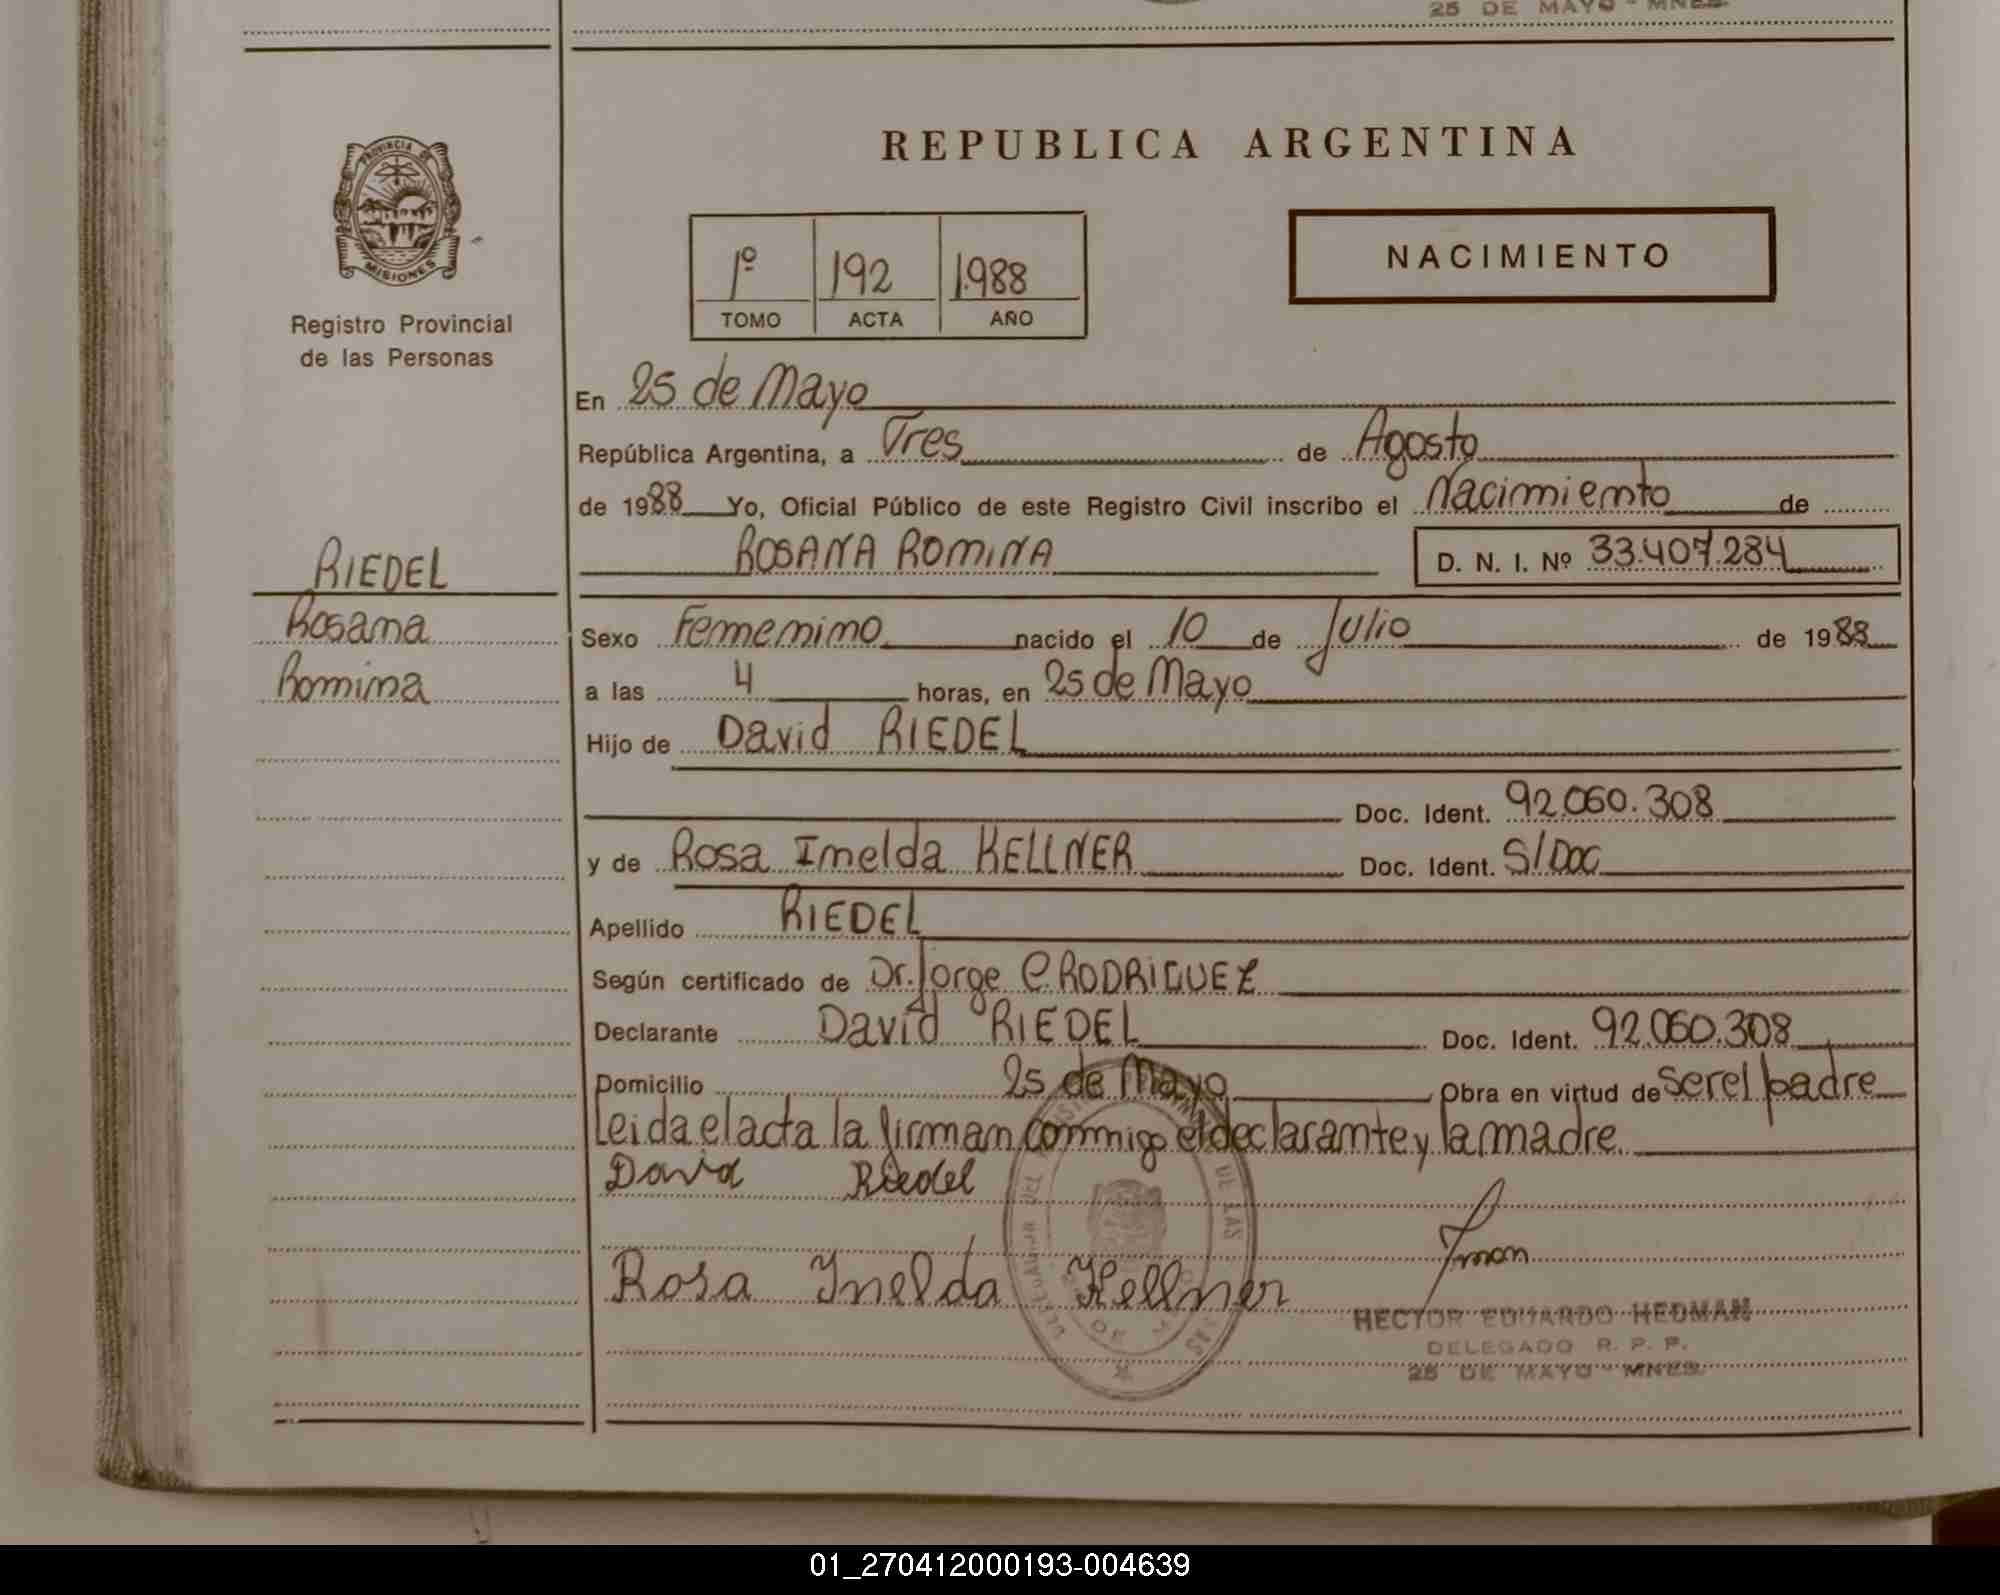 25 DE MAYO - MNES.
PROVINCIA DE
MISIONES
Registro Provincial
de las Personas
RIEDEL
Rosana
Romina
REPUBLICA ARGENTINA
1º 192 1.988
TOMO ACTA AÑO
NACIMIENTO
En 25 de Mayo
República Argentina, a Tres de Agosto
de 1988 Yo, Oficial Público de este Registro Civil inscribo el Nacimiento de
ROSANA ROMINA D. N. I. Nº 33.407.284
Sexo Femenino nacido el 10 de Julio de 1988
a las 4 horas, en 25 de Mayo
Hijo de David RIEDEL
Doc. Ident. 92.060.308
y de Rosa Imelda KELLNER Doc. Ident. S/Doc
Apellido RIEDEL
Según certificado de Dr. Jorge C. RODRIGUEZ
Declarante David RIEDEL Doc. Ident. 92.060.308
Domicilio 25 de Mayo Obra en virtud de ser el padre
Leida el acta la firman conmigo el declarante y la madre.
David Riedel
Rosa Inelda Kellner
HECTOR EDUARDO HEDMAN
DELEGADO R. P. P.
25 DE MAYO - MNES.
01_270412000193-004639